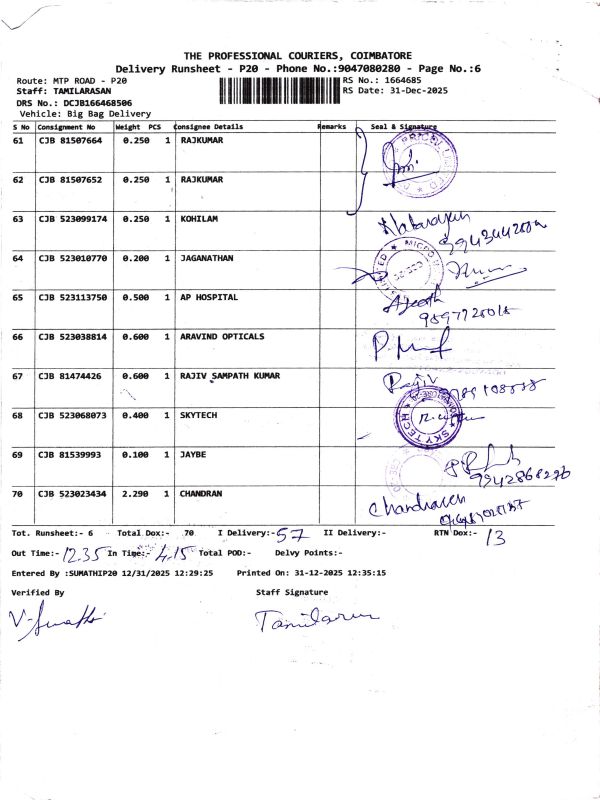 THE PROFESSIONAL COURIERS, COIMBATORE
Delivery Runsheet - P20 - Phone No.:9047080280 - Page No.:6
Route: MTP ROAD - P20 RS No.: 1664685
Staff: TAMILARASAN RS Date: 31-Dec-2025
DRS No.: DCJB166468506
Vehicle: Big Bag Delivery
S No Consignment No Weight PCS Consignee Details Remarks Seal & Signature
61 CJB 81507664 0.250 1 RAJKUMAR
62 CJB 81507652 0.250 1 RAJKUMAR
63 CJB 523099174 0.250 1 KOHILAM
64 CJB 523010770 0.200 1 JAGANATHAN
65 CJB 523113750 0.500 1 AP HOSPITAL
66 CJB 523038814 0.600 1 ARAVIND OPTICALS
67 CJB 81474426 0.600 1 RAJIV SAMPATH KUMAR Rajiv
68 CJB 523068073 0.400 1 SKYTECH SKYTECH
69 CJB 81539993 0.100 1 JAYBE 9942868276
70 CJB 523023434 2.290 1 CHANDRAN
Tot. Runsheet:- 6 Total Dox:- 70 I Delivery:- 57 II Delivery:- RTN Dox:- 13
Out Time:- 12.35 In Time:- 4.15 Total POD:- Delvy Points:-
Entered By :SUMATHIP20 12/31/2025 12:29:25 Printed On: 31-12-2025 12:35:15
Verified By Staff Signature